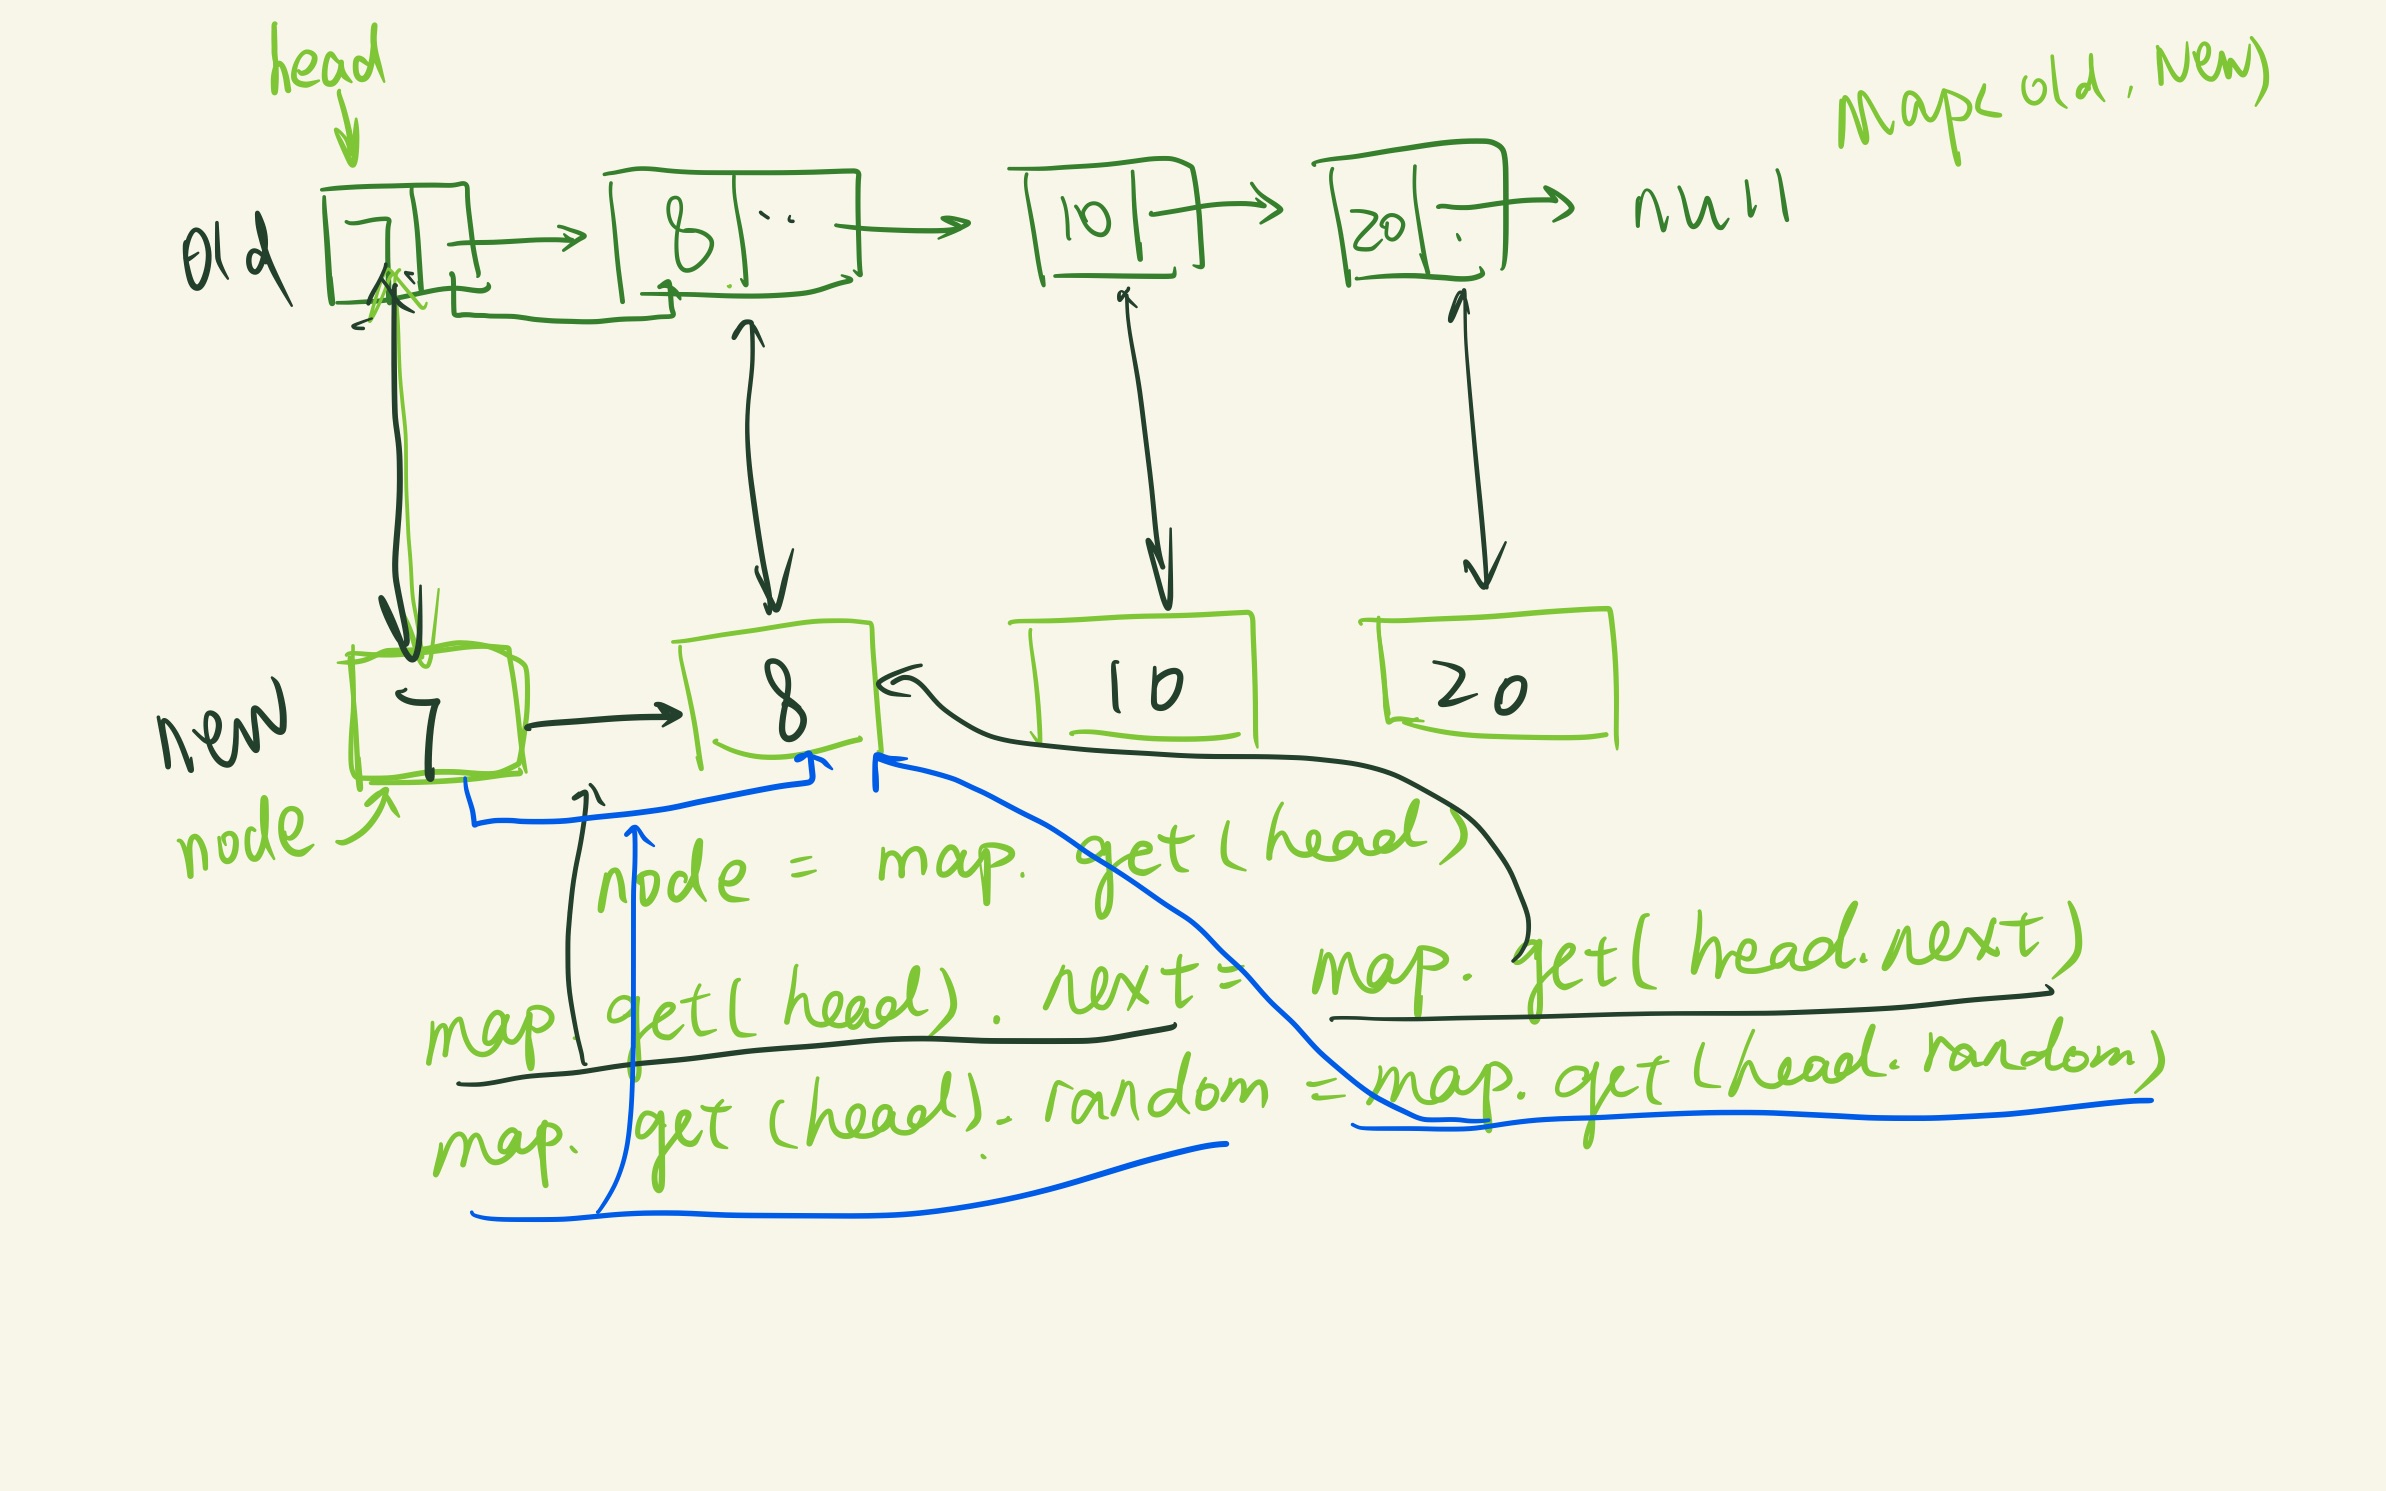 head
Map< old, New)
old 7 8 10 20 null
new 7 8 10 20
node
node = map. get(head)
map. get( head). next = map. get( head.next)
map. get (head). random = map. get (head. random)